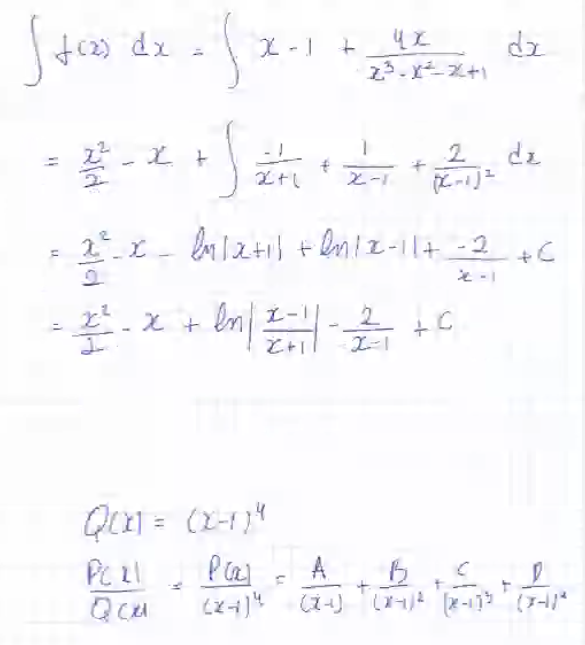 ∫ f(x) dx = ∫ x - 1 + 4x/(x³ - x² - x + 1) dx
= x²/2 - x + ∫ -1/(x+1) + 1/(x-1) + 2/(x-1)² dx
= x²/2 - x - ln|x+1| + ln|x-1| + -2/(x-1) + C
= x²/2 - x + ln|(x-1)/(x+1)| - 2/(x-1) + C
Q(x) = (x-1)⁴
P(x)/Q(x) = P(x)/(x-1)⁴ = A/(x-1) + B/(x-1)² + C/(x-1)³ + D/(x-1)⁴